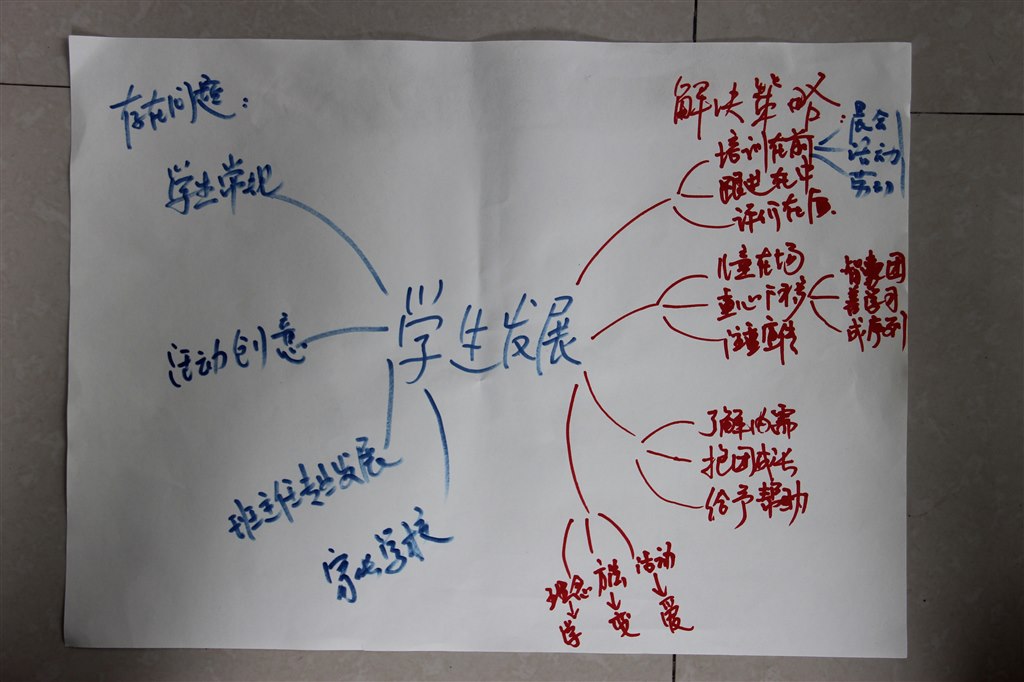 存在问题:
学生常规
活动创意
班主任专业发展
家长学校
学生发展
解决策略:
培训在前
跟进在中
评价在后
晨会
活动
劳动
儿童在场
重心下移
注重宣传
智囊团
善学习
成序列
了解内需
抱团成长
给予帮助
理念
方法
活动
学
变
爱